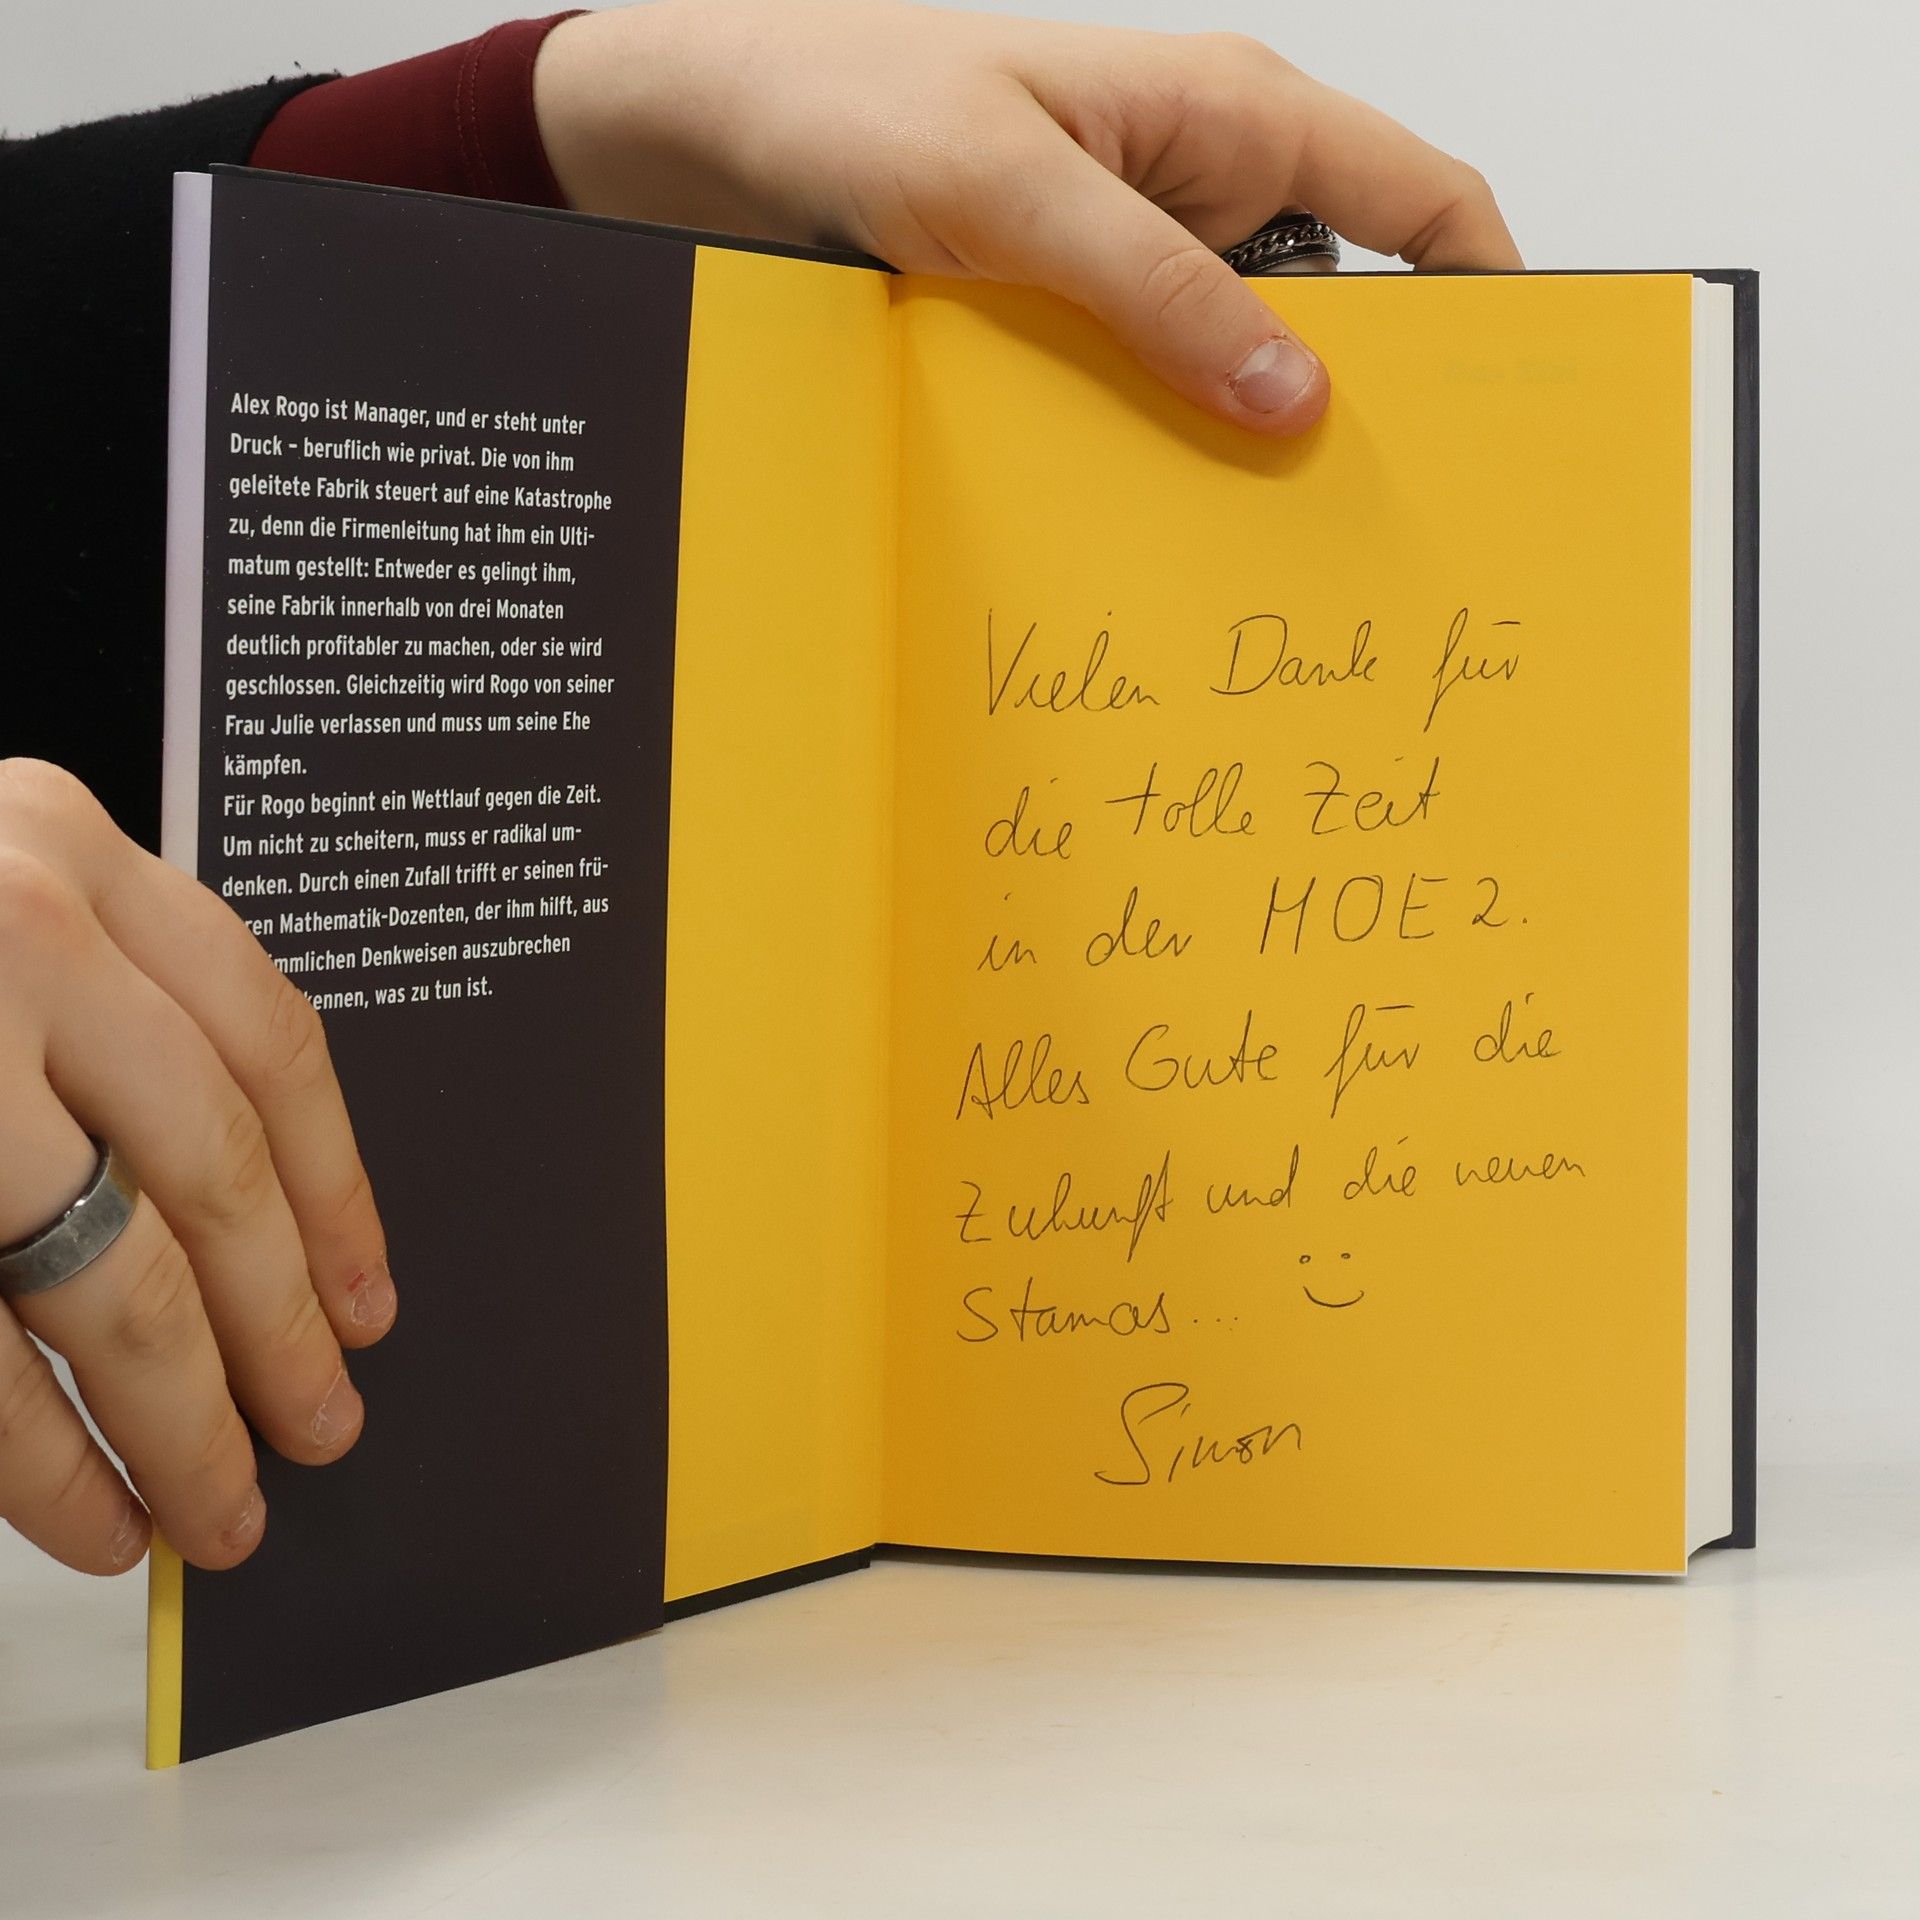 Alex Rogo ist Manager, und er steht unter
Druck – beruflich wie privat. Die von ihm
geleitete Fabrik steuert auf eine Katastrophe
zu, denn die Firmenleitung hat ihm ein Ulti-
matum gestellt: Entweder es gelingt ihm,
seine Fabrik innerhalb von drei Monaten
deutlich profitabler zu machen, oder sie wird
geschlossen. Gleichzeitig wird Rogo von seiner
Frau Julie verlassen und muss um seine Ehe
kämpfen.
Für Rogo beginnt ein Wettlauf gegen die Zeit.
Um nicht zu scheitern, muss er radikal um-
denken. Durch einen Zufall trifft er seinen frü-
ren Mathematik-Dozenten, der ihm hilft, aus
mmlichen Denkweisen auszubrechen
kennen, was zu tun ist.
Vielen Dank für
die tolle Zeit
in der MOE2.
Alles Gute für die
Zukunft und die neuen
Stamos...
Simon